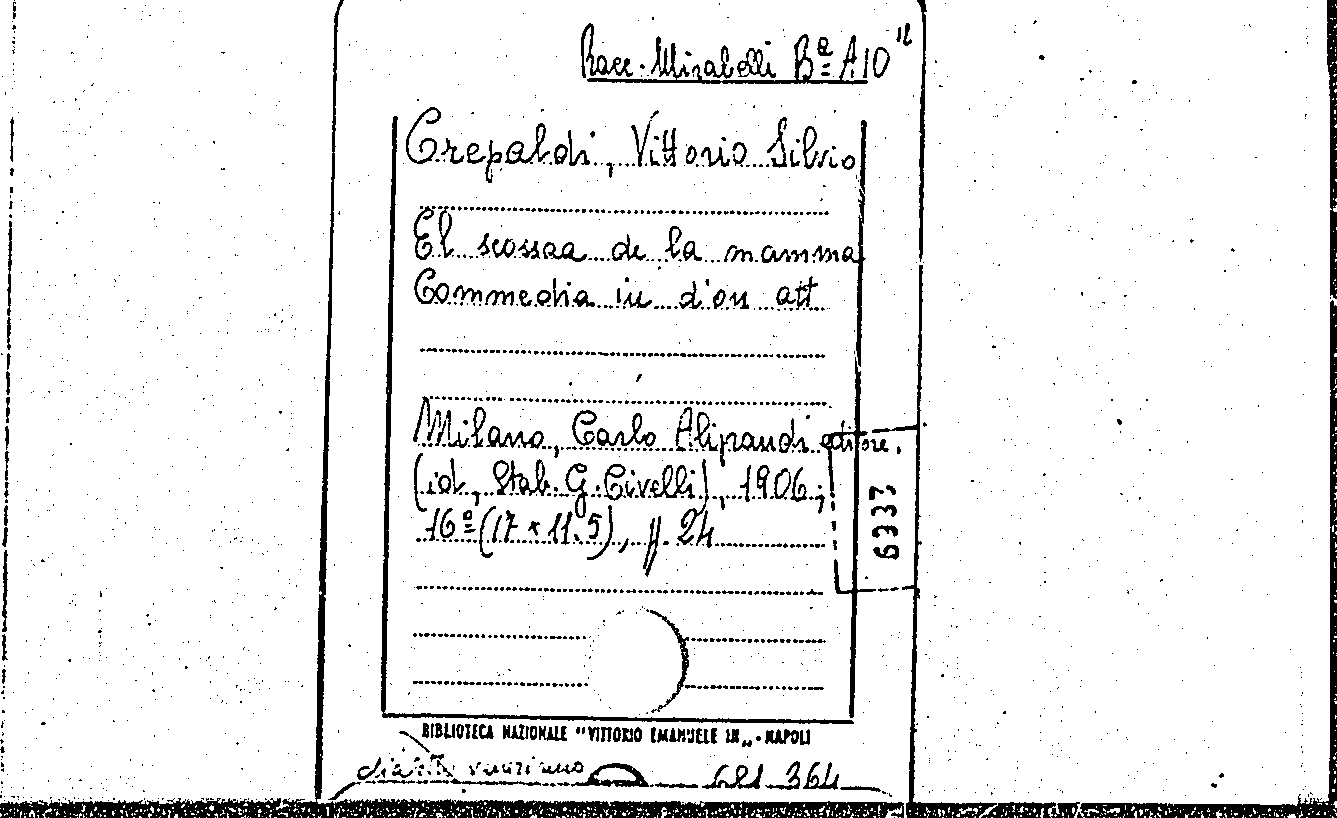 Racc. Mirabelli Bª A 10 12
Crepaldi, Vittorio Silvio
El scossaa de la mamma
Commedia in d'on att
Milano, Carlo Aliprandi editore,
(id, Stab. G. Civelli), 1906;
16º (17 x 11.5), p. 24
6337
BIBLIOTECA NAZIONALE "VITTORIO EMANUELE III„ - NAPOLI
veneziano 681 364